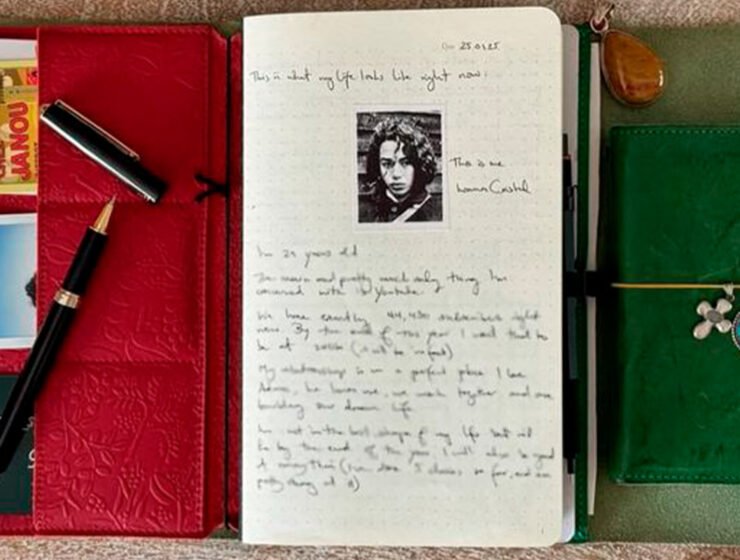 25.01.25
This is what my life looks like right now:
This is me
JANOU
I'm 25 years old
The main and pretty much only thing I'm
concerned with is Youtube.
We have exactly 44,430 subscribers right
now. By the end of this year I want that to
be at (it will be in fact)
My relationship is in a perfect place I love
he loves me, we work together and are
building our dream life.
I'm not in the best shape of my life but I'll
be by the end of the year. I will also be good
at (I've done 5 classes so far, and am
pretty at it)